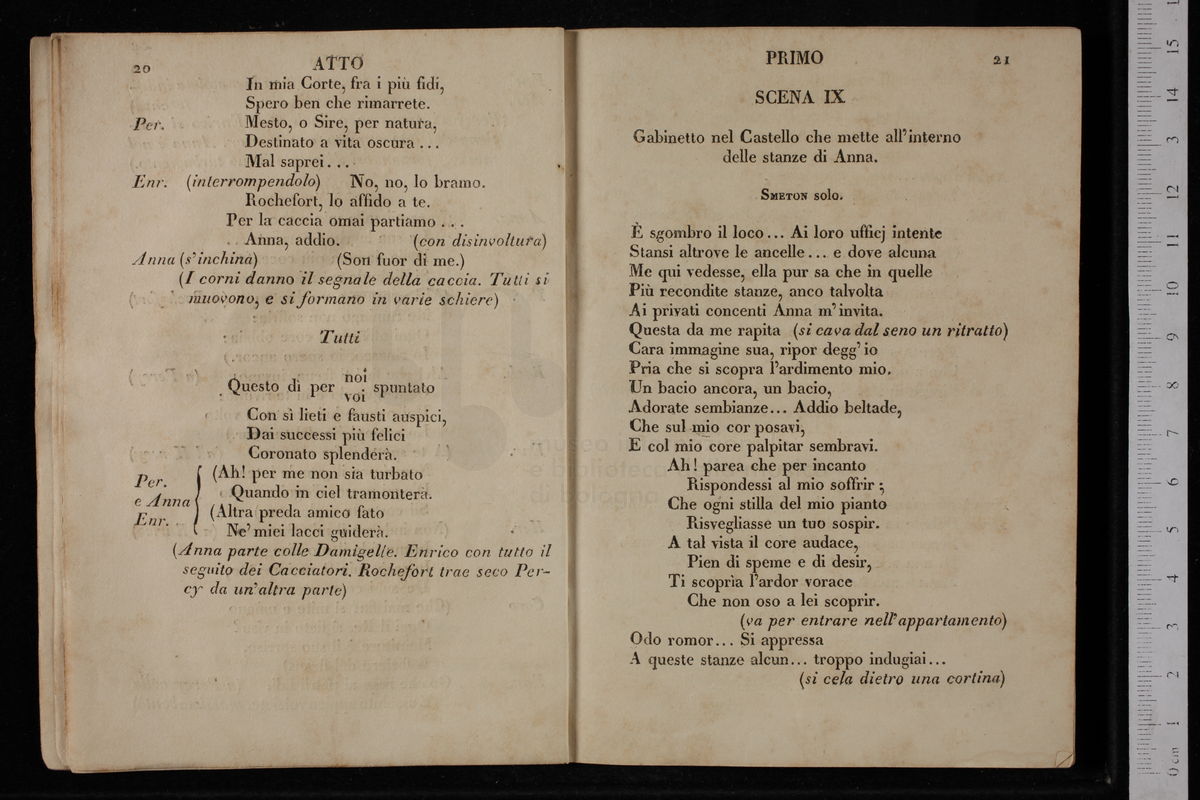 20 ATTO
In mia Corte, fra i più fidi,
Spero ben che rimarrete.
Per. Mesto, o Sire, per natura,
Destinato a vita oscura ...
Mal saprei...
Enr. (interrompendolo) No, no, lo bramo.
Rochefort, lo affido a te.
Per la caccia omai partiamo ...
Anna, addio. (con disinvoltura)
Anna (s'inchina) (Son fuor di me.)
(I corni danno il segnale della caccia. Tutti si
muovono, e si formano in varie schiere)
Tutti
Questo dì per noi voi spuntato
Con sì lieti e fausti auspici,
Dai successi più felici
Coronato splenderà.
Per. e Anna (Ah! per me non sia turbato
Quando in ciel tramonterà.
Enr. (Altra preda amico fato
Ne' miei lacci guiderà.
(Anna parte colle Damigelle. Enrico con tutto il
seguito dei Cacciatori. Rochefort trae seco Per-
cy da un'altra parte)
PRIMO 21
SCENA IX
Gabinetto nel Castello che mette all'interno
delle stanze di Anna.
SMETON solo.
È sgombro il loco... Ai loro ufficj intente
Stansi altrove le ancelle... e dove alcuna
Me qui vedesse, ella pur sa che in quelle
Più recondite stanze, anco talvolta
Ai privati concenti Anna m'invita.
Questa da me rapita (si cava dal seno un ritratto)
Cara immagine sua, ripor degg' io
Pria che si scopra l'ardimento mio.
Un bacio ancora, un bacio,
Adorate sembianze... Addio beltade,
Che sul mio cor posavi,
E col mio core palpitar sembravi.
Ah! parea che per incanto
Rispondessi al mio soffrir;
Che ogni stilla del mio pianto
Risvegliasse un tuo sospir.
A tal vista il core audace,
Pien di speme e di desir,
Ti scopria l'ardor vorace
Che non oso a lei scoprir.
(va per entrare nell'appartamento)
Odo romor... Si appressa
A queste stanze alcun... troppo indugiai...
(si cela dietro una cortina)
museo i
e biblioteca
di bologna
0 cm 1 2 3 4 5 6 7 8 9 10 11 12 13 14 15